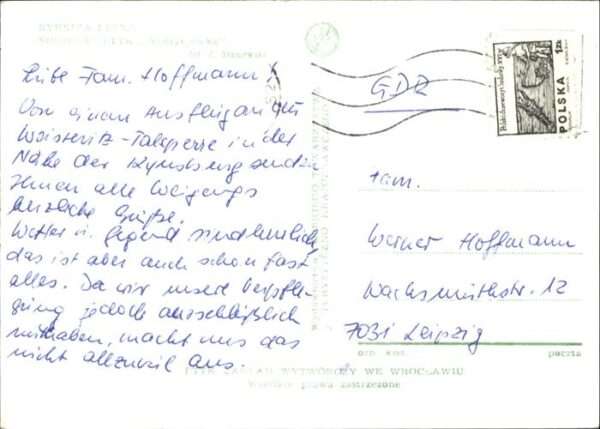 Liebe Fam. Hoffmann!
Von einem Ausflug an die
Weistritz-Talsperre in der
Nähe der Kynsburg senden
Ihnen alle Weigangs
herzliche Grüße.
Wetter u. Gegend sind herrlich,
das ist aber auch schon fast
alles. Da wir unsere Verpfle-
gung jedoch ausschließlich
mithaben, macht uns das
nicht allzuviel aus.
GDR
POLSKA
1 ZŁ
Fam.
Werner Hoffmann
Wachsmuthstr. 12
7031 Leipzig
poczta
ZAKŁAD WYTWÓRCZY WE WROCŁAWIU
Wszelkie prawa zastrzeżone